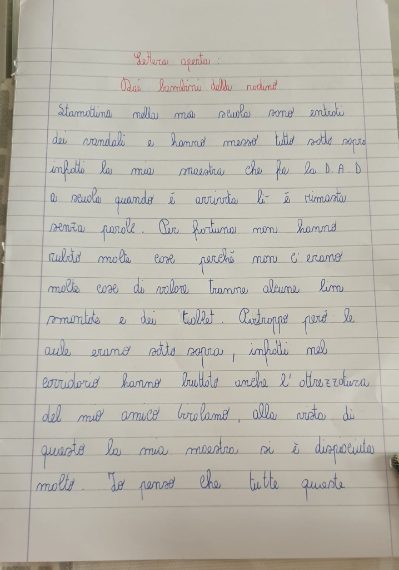 Lettera aperta:
Dai bambini della
Stamattina nella mia scuola sono entrati
dei vandali e hanno messo tutto sotto sopra
infatti la mia maestra che fa la D.A.D
a scuola quando è arrivata lì è rimasta
senza parole. Per fortuna non hanno
rubato molte cose perché non c'erano
molte cose di valore tranne alcune lim
smontate e dei tablet. Purtroppo però le
aule erano sotto sopra, infatti nel
corridorio hanno buttato anche l'attrezzatura
del mio amico Girolamo, alla vista di
questo la mia maestra si è dispiaciuta
molto. Io penso che tutte queste